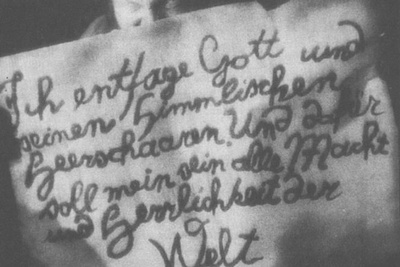 Ich entsage Gott und
seinen himmlischen
Heerschaaren. Und dafür
soll mein sein alle Macht
und Herrlichkeit der
Welt